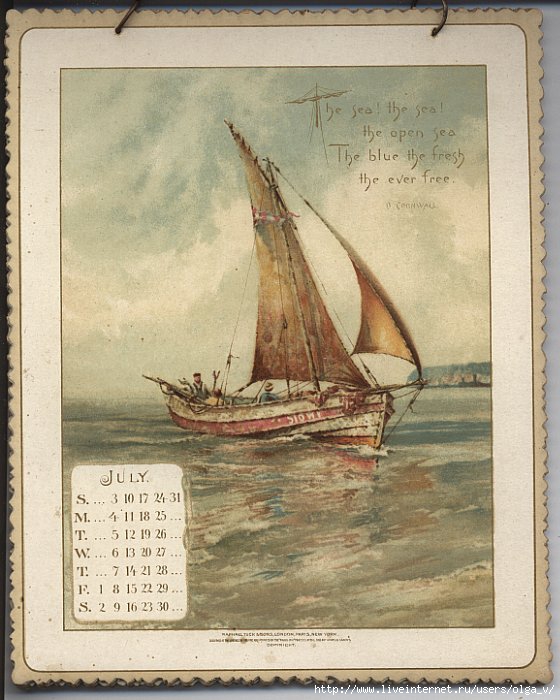 The sea! the sea!
the open sea
The blue the fresh
the ever free.
CORNWALL
JULY.
S. ... 3 10 17 24 31
M. ... 4 11 18 25 ...
T. ... 5 12 19 26 ...
W. ... 6 13 20 27 ...
T. ... 7 14 21 28 ...
F. 1 8 15 22 29 ...
S. 2 9 16 23 30 ...
RAPHAEL TUCK & SONS, LONDON, PARIS, NEW YORK.
COPYRIGHT
http://www.liveinternet.ru/users/olga_v/